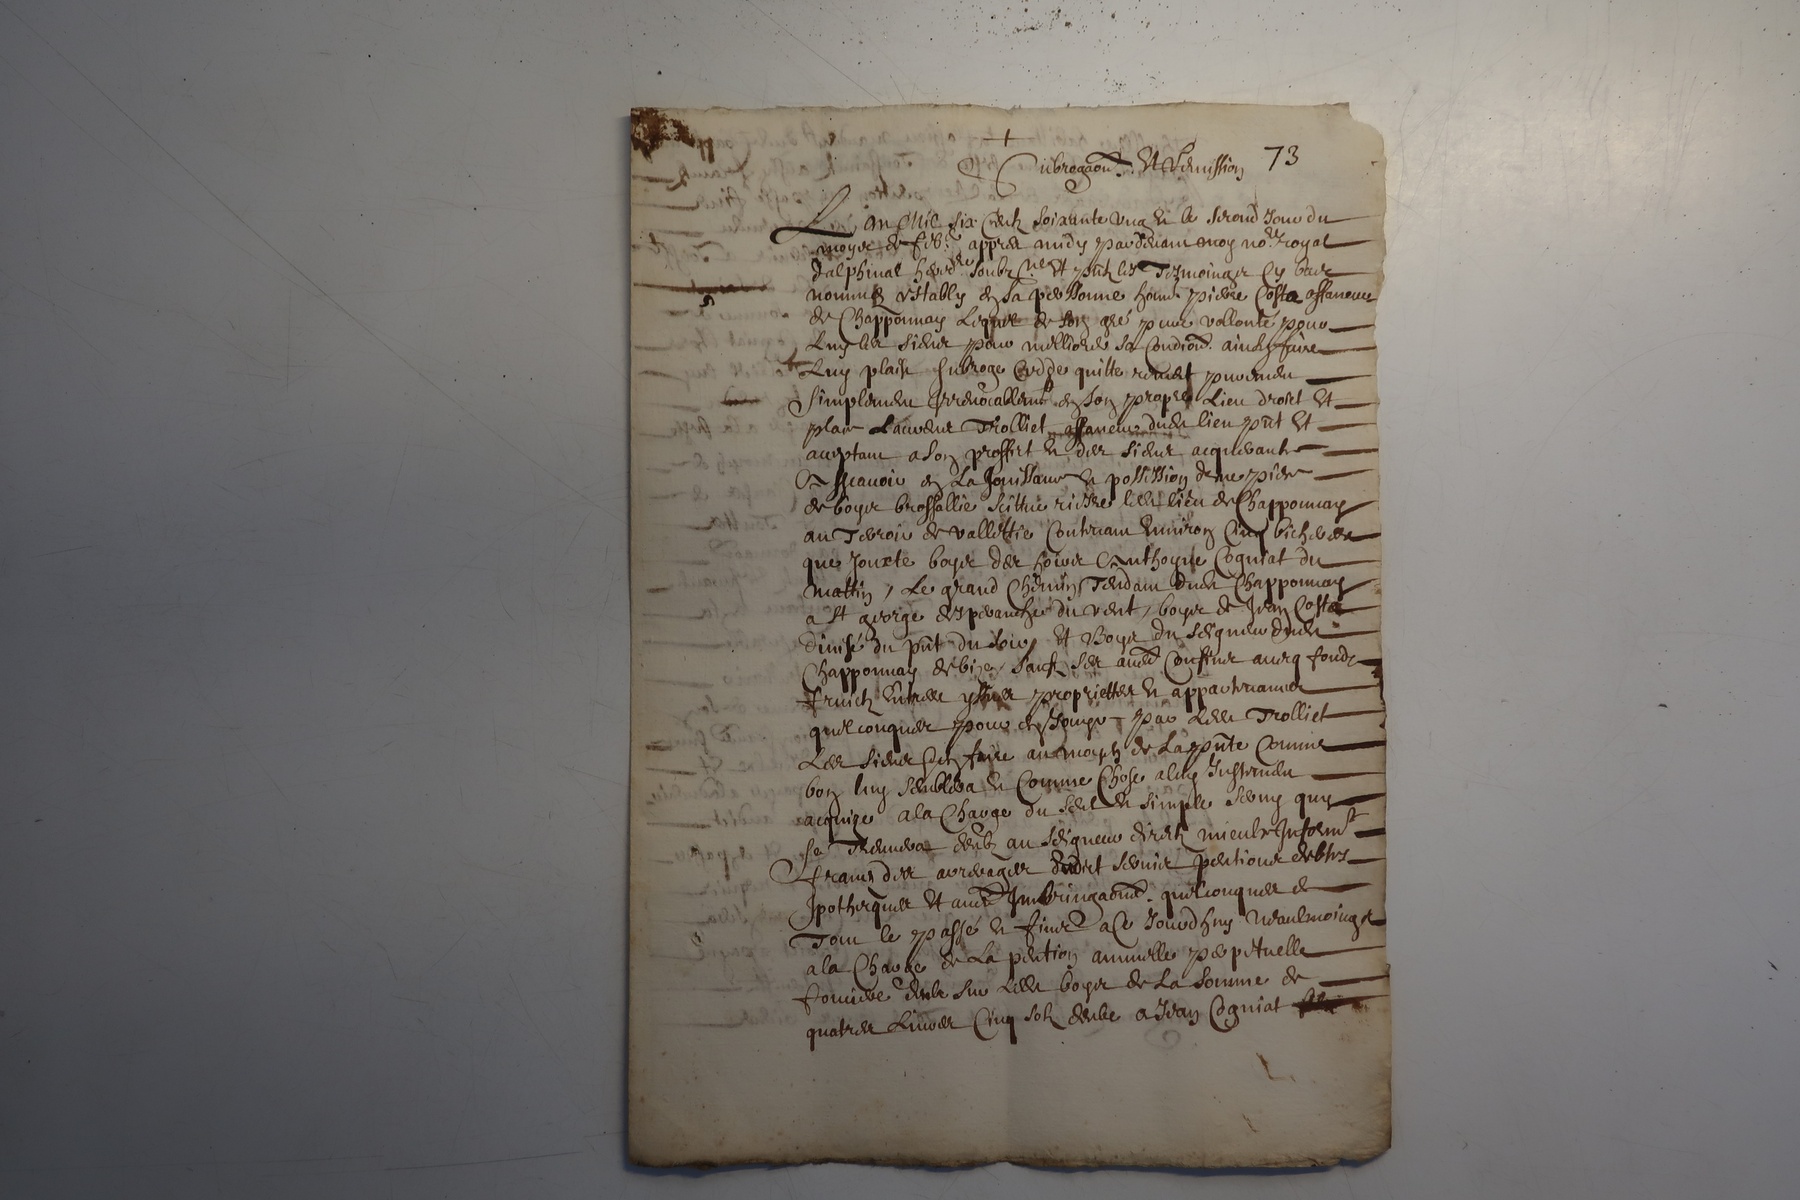 +
Subrogaon. Et Remission 73
L an Mil six centz soixante ung & le second Jour du
moys de feb.r appres midy par devant moy no.re royal
dalphinal hered.re soubz.né & pntz les Tesmoingz cy bas
nommez estably en sa personne hon. pierre Costa affaneur
de Chapponnay Lequel de son gré pure vollonté pour
Luy les siens pour melliorer sa Condion. ainsy faire
Luy plaist subroge Cedde quitte remet purement
simplement Irrevocablem.t en son propre Lieu droict Et
place Laurent Trolliet affaneur dudt lieu pnt Et
aceptant a son proffict & des siens acquerant
A Scavoir en La Jouissance & possession dune piece
de boys brossallie scittue riere ledt lieu de Chapponnay
au Terroir de vallettie Contenant Environ Cinq bicherees
que Jouxte boys des hoirs Anthoyne Cogniat du
mattin, Le grand Chemin Tendant dudt Chapponnay
a St george desperanche du vent, boys de Jean Costa
divisé du pnt du soir, Et Boys du seigneur dudt
Chapponnay de bize, sauf ses aues Confins avecq fondz
fruictz Entree yssues proprietter & appartenances
quelconques pour en Jouyr par Ledt Trolliet
Les siens Et en faire au moyen de La pnte Comme
bon luy semblera & Comme Chose a luy Justement
acquise a la Charge du seul & simple servis quy
se Treuvera deub au seigneur direct mieulx Inform.t
francz des arreages dudict servis pentions debtes
Ipothecques Et aues Imbringaons. quelconques de
Tout le passé & finer a Ce Jourdhuy neaulmoingz
a la Charge de La pention annuelle perpetuelle
fonciere deube sur Ledt boys de La somme de
quatres Livres Cinq solz deube a Jean Cogniat